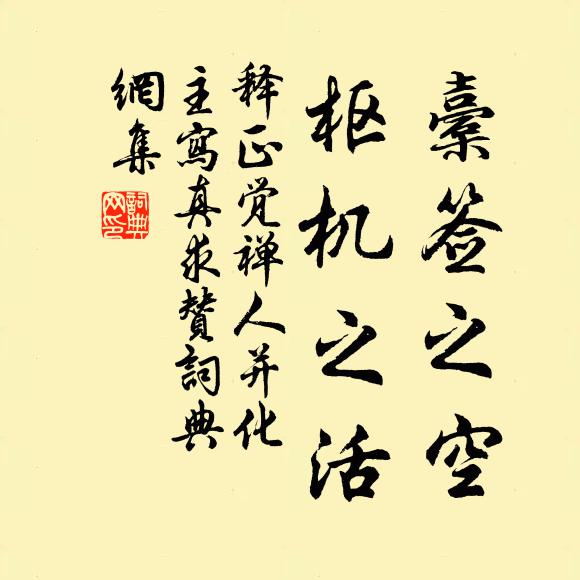 橐签之空
枢机之活
释正觉禅人并化
主寫真求贊詞典
網集
詞典
网印